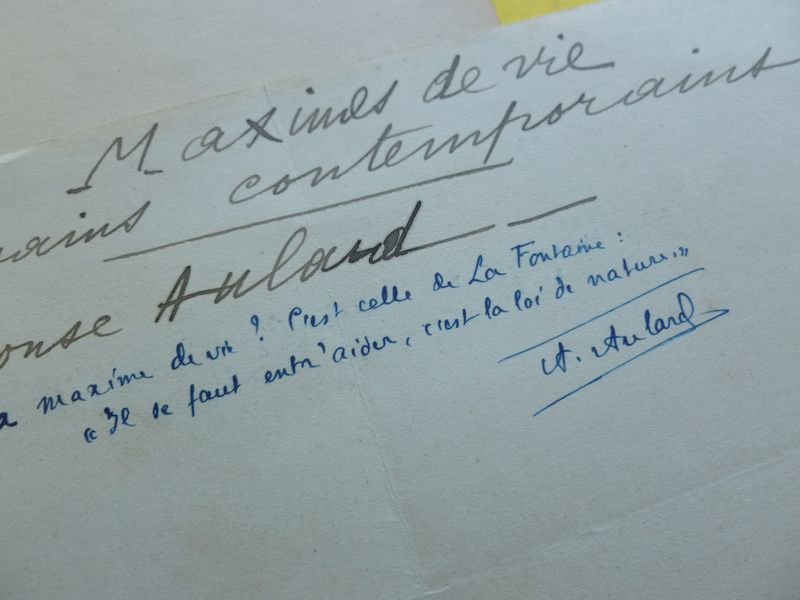 Maximes de vie
contemporains
Aulard
maxime de vie ? C'est celle de La Fontaine :
« Il se faut entr'aider, c'est la loi de nature. »
A. Aulard